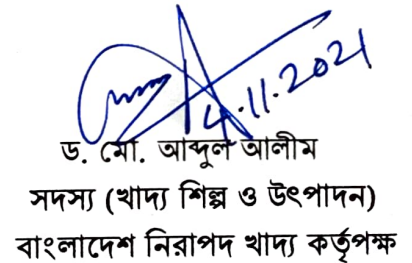 4.11.2021
ড. মো. আব্দুল আলীম
সদস্য (খাদ্য শিল্প ও উৎপাদন)
বাংলাদেশ নিরাপদ খাদ্য কর্তৃপক্ষ